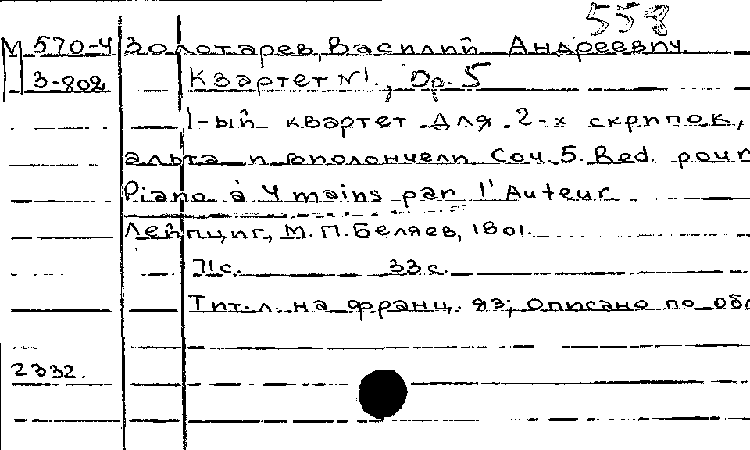 558
М 570-4 Золотарев, Василий Андреевич.
З-802 Квартет №1, Op. 5
1-ый квартет для 2-х скрипок,
альта и виолончели Соч. 5. Red. pour
Piano à 4 mains par l'Auteur
Лейпциг, М. П. Беляев, 1801.
71 с. 33 с.
Тит. л. на франц. яз; описано по обл
2332.